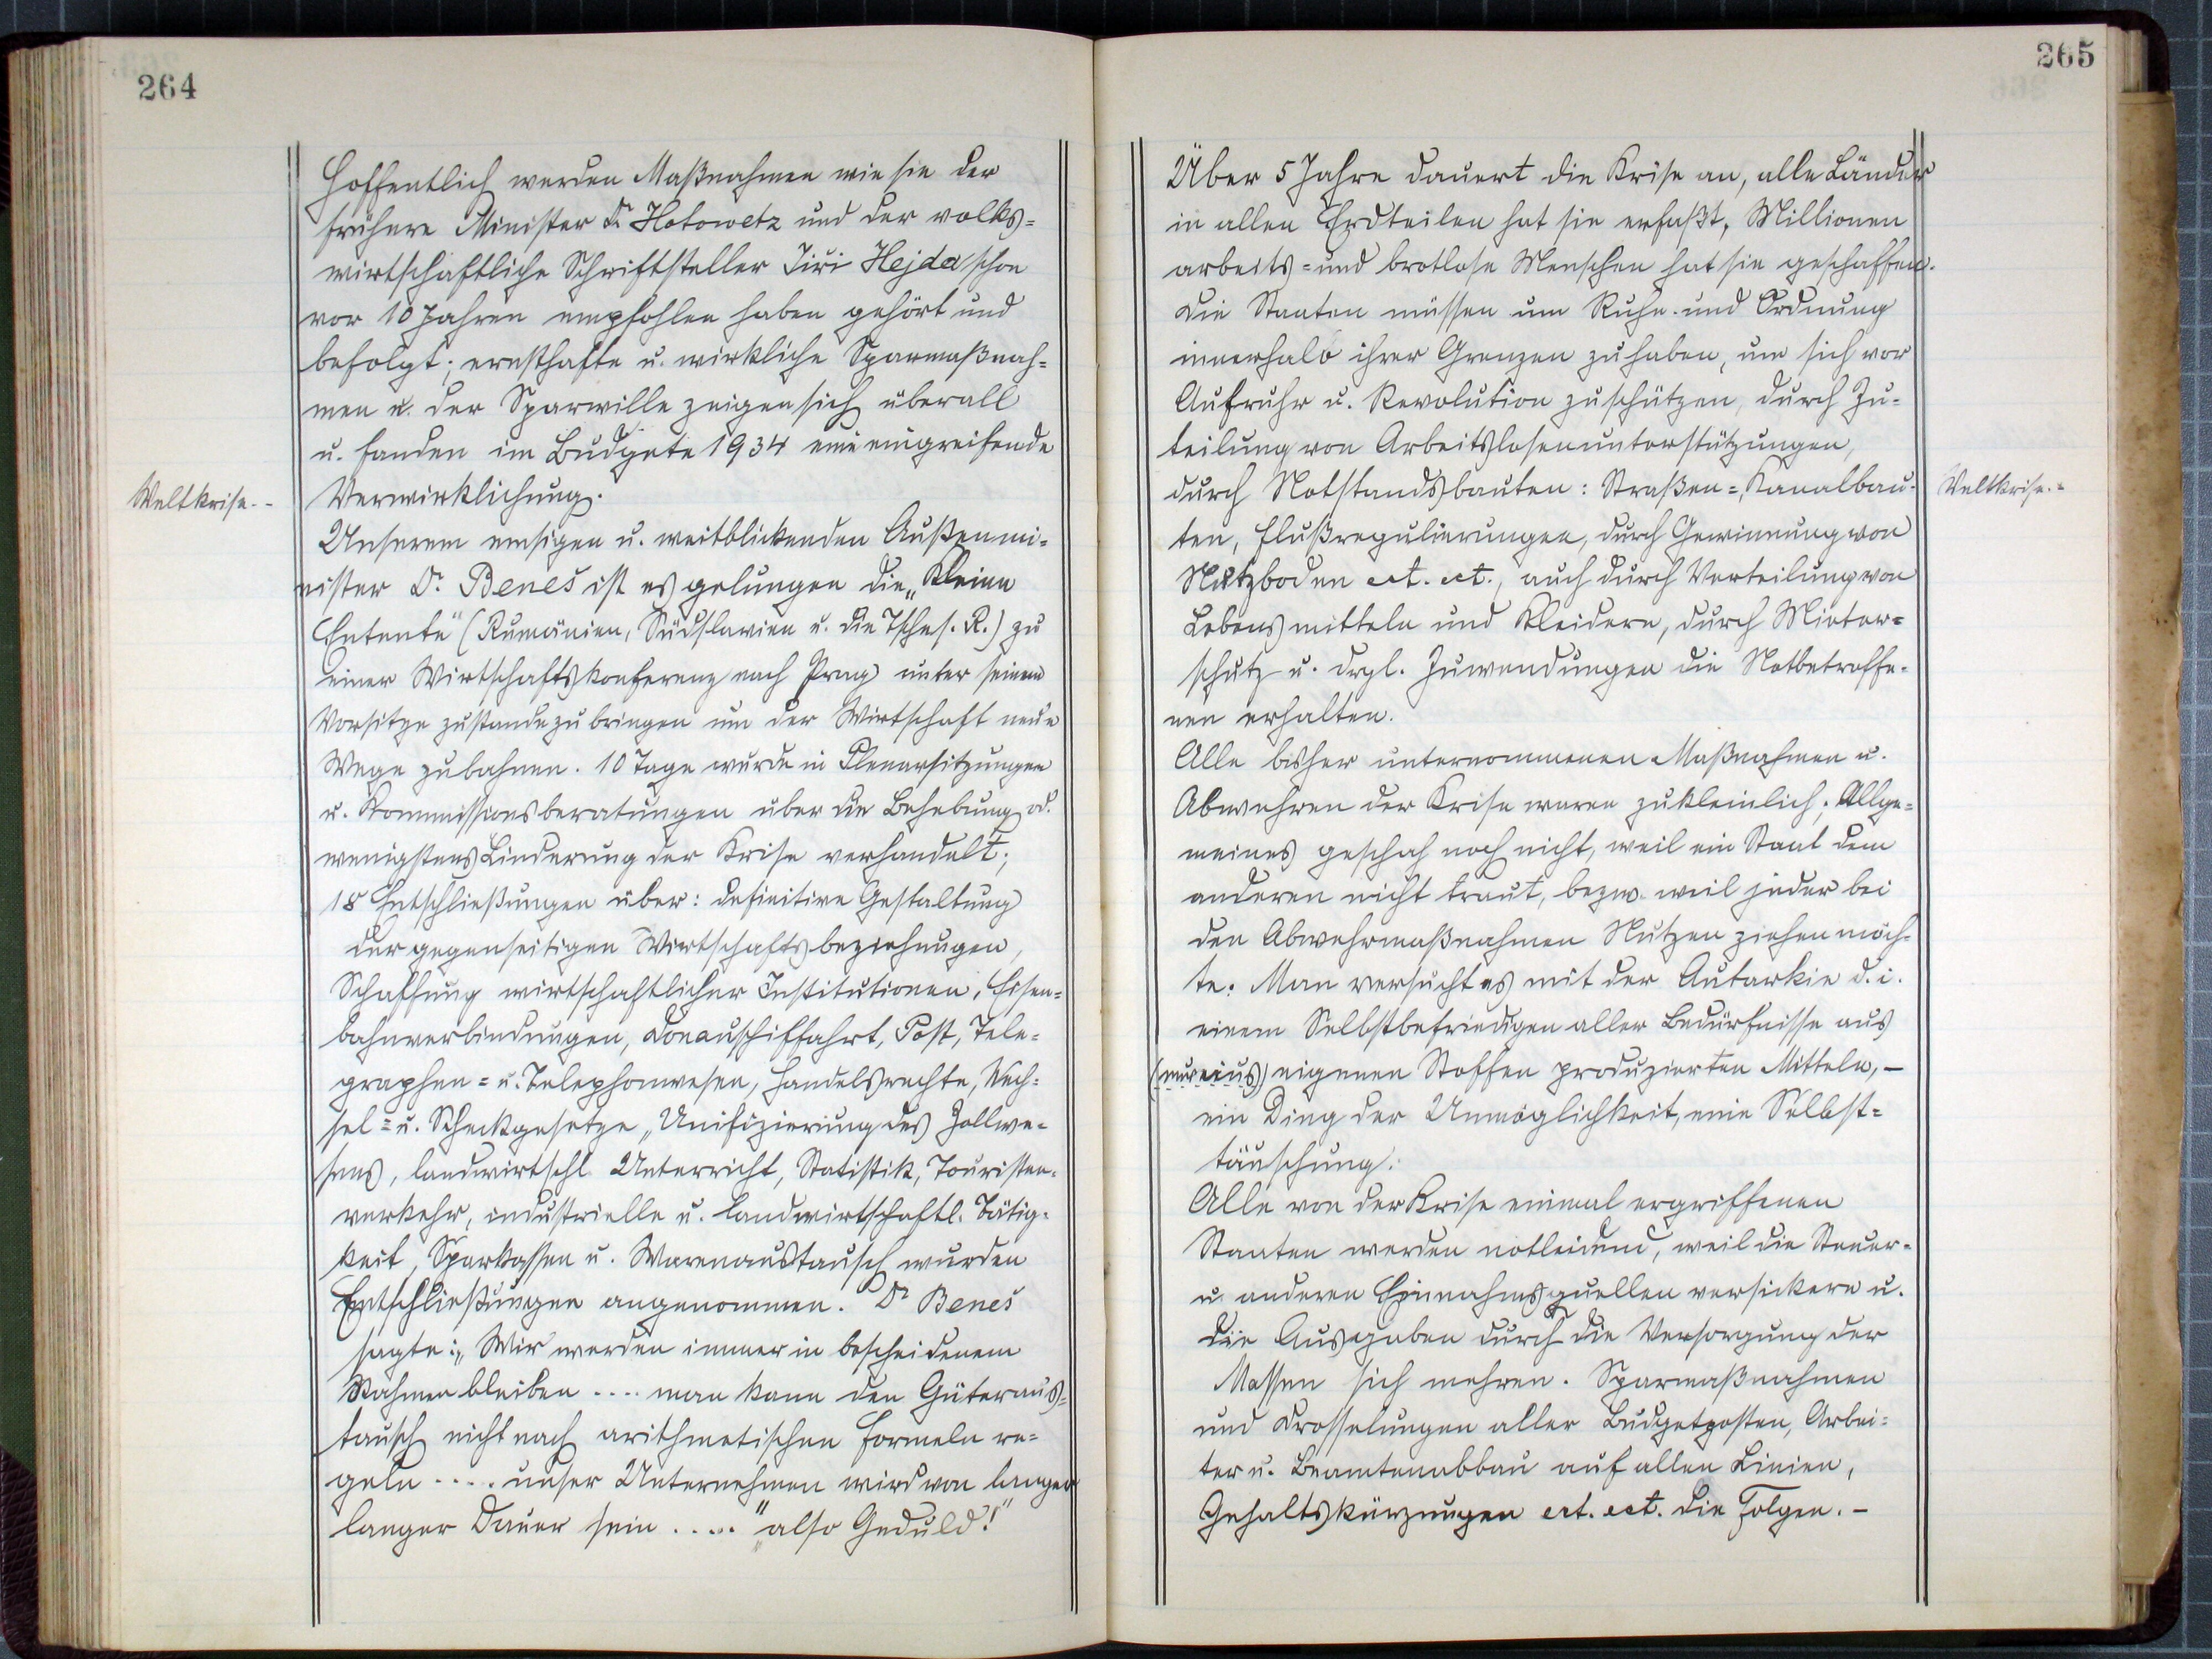 264
Hoffentlich werden Maßnahmen wie sie der
frühere Minister Dr. Hotowetz und der volks=
wirtschaftliche Schriftsteller Jiri Hejda schon
vor 10 Jahren empfohlen haben gehört und
befolgt; ernsthafte u. wirkliche Sparmaßnah=
men u. der Sparwille zeigen sich überall
u. fanden im Budgete 1934 eine eingreifende
Verwirklichung.
Weltkrise.-
Unserem emsigen u. weitblickenden Außenmi=
nister Dr. Beneš ist es gelungen die „Kleine
Entente" (Rumänien, Südslavien u. die Tsches. R.) zu
einer Wirtschaftskonferenz nach Prag unter seinem
Vorsitze zustande zu bringen um der Wirtschaft neue
Wege zu bahnen. 10 Tage wurde in Plenarsitzungen
u. Kommissionsberatungen über die Behebung od.
wenigstens Linderung der Krise verhandelt;
18 Entschließungen über: definitive Gestaltung
der gegenseitigen Wirtschaftsbeziehungen,
Schaffung wirtschaftlicher Institutionen, Eisen=
bahnverbindungen, Donauschiffahrt, Post, Tele=
graphen= u. Telephonwesen, Handelsrechte, Wech=
sel= u. Scheckgesetze, Unifizierung des Zollwe=
sens, landwirtschl. Unterricht, Statistik, Touristen=
verkehr, industrielle u. landwirtschaftl. Tätig=
keit, Sparkassen u. Warenaustausch wurden
Entschließungen angenommen. Dr. Beneš
sagte: „Wir werden immer in bescheidenem
Rahmen bleiben .... man kann den Güteraus=
tausch nicht nach arithmetischen Formeln re=
geln .... unser Unternehmen wird von langer
langer Dauer sein ....." „also Geduld!"
265
Über 5 Jahre dauert die Krise an, alle Länder
in allen Erdteilen hat sie erfaßt, Millionen
arbeits= und brotlose Menschen hat sie geschaffen.
Die Staaten müssen um Ruhe und Ordnung
innerhalb ihrer Grenzen zu haben, um sich vor
Aufruhr u. Revolution zu schützen, durch Zu=
teilung von Arbeitslosenunterstützungen,
durch Notstandsbauten: Straßen=, Kanalbau=
Weltkrise.-
ten, Flußregulierungen, durch Gewinnung von
Nutzboden ect. ect., auch durch Verteilung von
Lebensmitteln und Kleidern, durch Mieter=
schutz u. drgl. Zuwendungen die Notbetroffe=
nen erhalten.
Alle bisher unternommenen Maßnahmen u.
Abwehren der Krise waren zu kleinlich; Allge=
meines geschah noch nicht, weil ein Staat dem
anderen nicht traut, bezw. weil jeder bei
den Abwehrmaßnahmen Nutzen ziehen möch=
te. Man versucht es mit der Autarkie d. i.
einem Selbstbefriedigen aller Bedürfnisse aus
(nur aus) eigenen Stoffen produzierten Mitteln, -
ein Ding der Unmöglichkeit, eine Selbst=
täuschung.
Alle von der Krise einmal ergriffenen
Staaten werden notleidend, weil die Steuer=
u. anderen Einnahmsquellen versickern u.
die Ausgaben durch die Versorgung der
Massen sich mehren. Sparmaßnahmen
und Drosselungen aller Budgetposten, Arbei=
ter u. Beamtenabbau auf allen Linien,
Gehaltskürzungen ect. ect. die Folgen. -